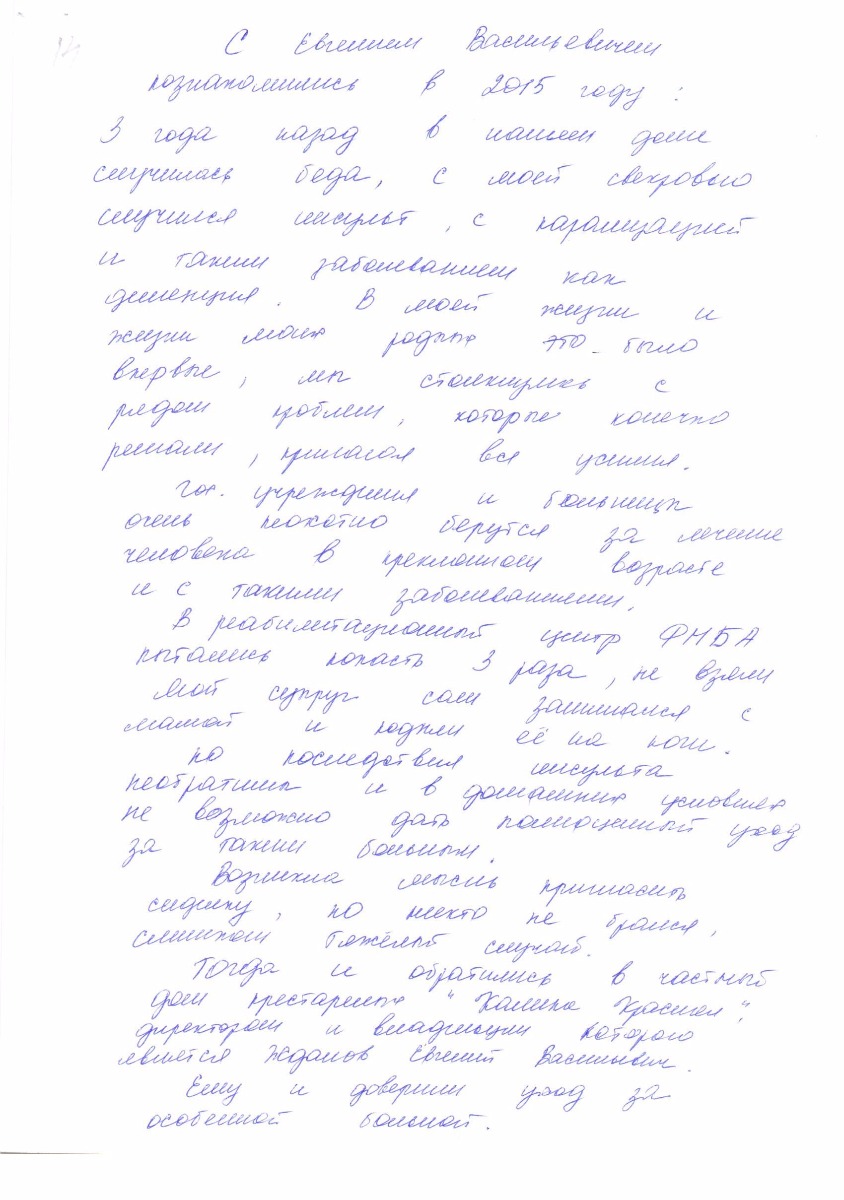 С Евгением Васильевичем
познакомились в 2015 году:
3 года назад в нашем доме
случилась беда, с моей свекровью
случился инсульт, с парализацией
и таким заболеванием как
деменция. В моей жизни и
жизни моих родных это было
впервые, мы столкнулись с
рядом проблем, которые конечно
решали, прилагая все усилия.
Гос. учреждения и больницы
очень неохотно берутся за лечение
человека в преклонном возрасте
и с такими заболеваниями.
В реабилитационный центр ФМБА
пытались попасть 3 раза, не взяли
Мой супруг сам занимался с
мамой и подняли её на ноги.
но последствия инсульта
необратимы и в домашних условиях
не возможно дать полноценный уход
за таким больным.
Возникла мысль пригласить
сиделку, но никто не брался,
слишком тяжёлый случай.
Тогда и обратились в частный
дом престарелых "Калина Красная",
директором и владельцем которого
является Жданов Евгений Васильевич.
Ему и доверили уход за
особенной больной.